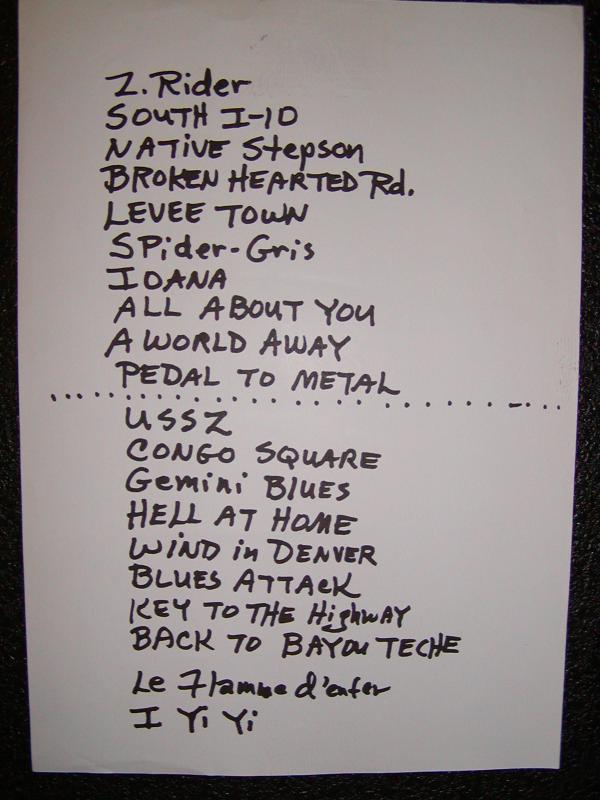 Z. Rider
SOUTH I-10
NATIVE Stepson
BROKEN HEARTED Rd.
LEVEE TOWN
SPider-Gris
IOANA
ALL ABOUT YOU
A WORLD AWAY
PEDAL TO METAL
USSZ
CONGO SQUARE
Gemini BLUES
HELL AT HOME
WIND in DENVER
BLUES ATTACK
KEY TO THE HighWAY
BACK TO BAYOU TECHE
Le Flamme d'enfer
I Yi Yi